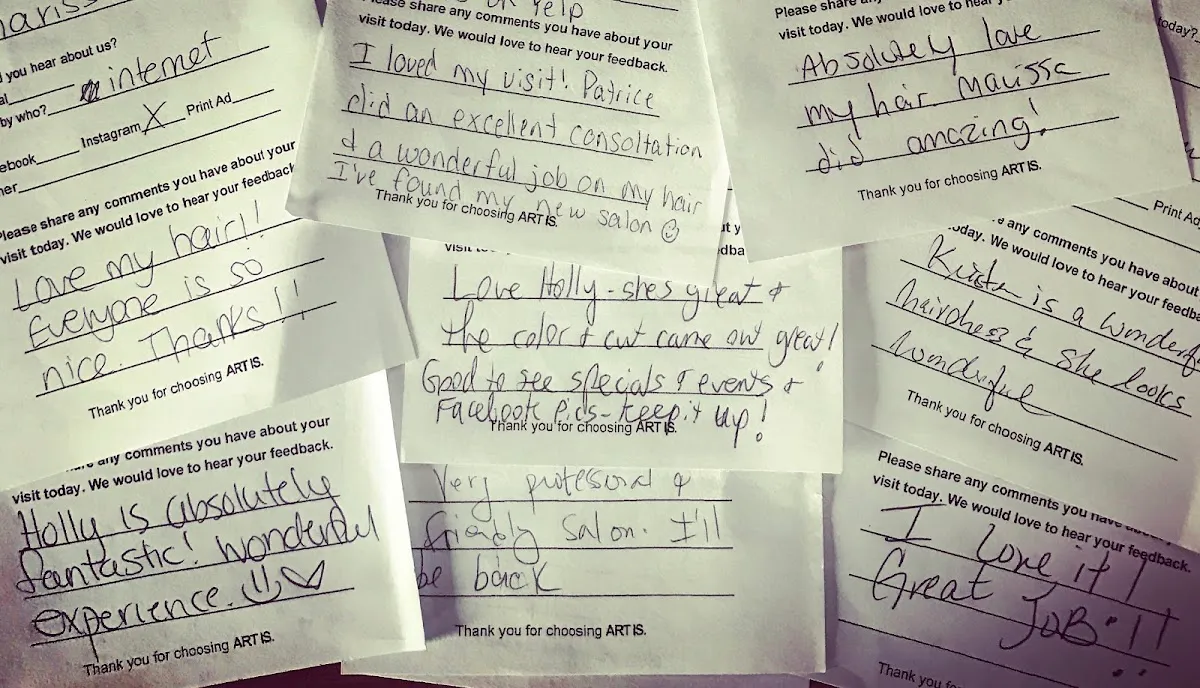 you hear about us?
by who? internet
Instagram X Print Ad
Please share any comments you have about your
visit today. We would love to hear your feedback
Love my hair!!
Everyone is so
nice. Thanks!!
Thank you for choosing ART IS.
Yelp
Please share any comments you have about your
visit today. We would love to hear your feedback.
I loved my visit! Patrice
did an excellent consoltation
& a wonderful job on my hair
I've found my new salon
Thank you for choosing ART IS.
Please share any
visit today. We would love to hear your
Absolutely love
my hair Marissa
did amazing!
Thank you for choosing ART IS.
today?
Love Holly - shes great &
the color & cut came out great!
Good to see specials & events &
Facebook pics - keep it up!
Thank you for choosing ART IS.
Print Ad
any comments you have about
today. We would love to hear your
is a
hairdress & she looks
wonderful
Thank you for choosing ART IS.
any comments you have about your
visit today. We would love to hear your feedback.
Holly is absolutely
fantastic! Wonderful
experience.
Thank you for choosing ART IS.
Very professional &
friendly salon. I'll
be back
Thank you for choosing ART IS.
Please share any comments you have about your
visit today. We would love to hear your feedback.
I love it!
Great
JOB!!
Thank you for